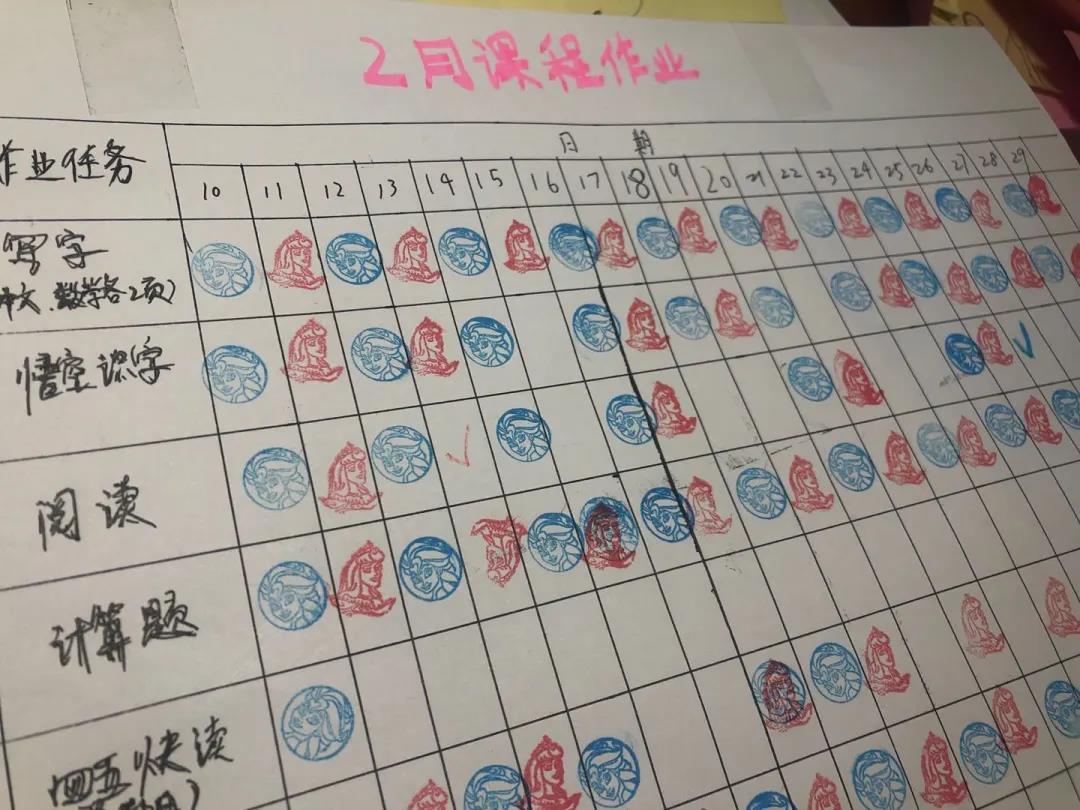 2月课程作业
日 期
作业任务
10 11 12 13 14 15 16 17 18 19 20 21 22 23 24 25 26 27 28 29
写字
数学各2项)
悟空识字
阅读
计算题
四五快读